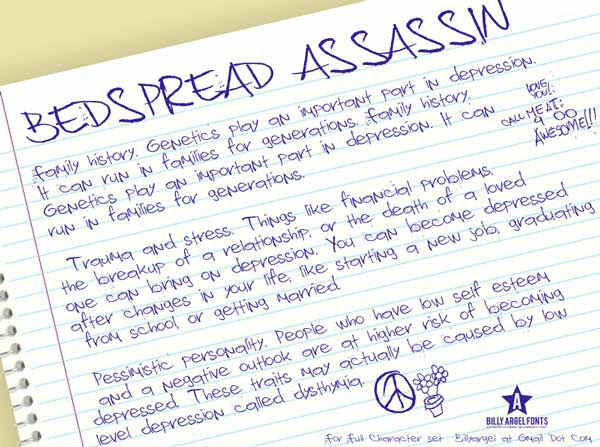 BEDSPREAD ASSASSIN
family history. Genetics play an important part in depression.
It can run in families for generations. family history.
Genetics play an important part in depression. It can
run in families for generations.
LOVE
YOU!.
CALL ME AT:
9 OO
AWESOME!!!
Trauma and stress. Things like financial problems,
the breakup of a relationship, or the death of a loved
one can bring on depression. You can become depressed
after changes in your life, like starting a new job, graduating
from school, or getting married.
Pessimistic personality. People who have low self esteem
and a negative outlook are at higher risk of becoming
depressed. These traits may actually be caused by low
level depression called dysthymia.
A
BILLY ARGEL FONTS
for full Character set Billyargel at Gmail Dot Com